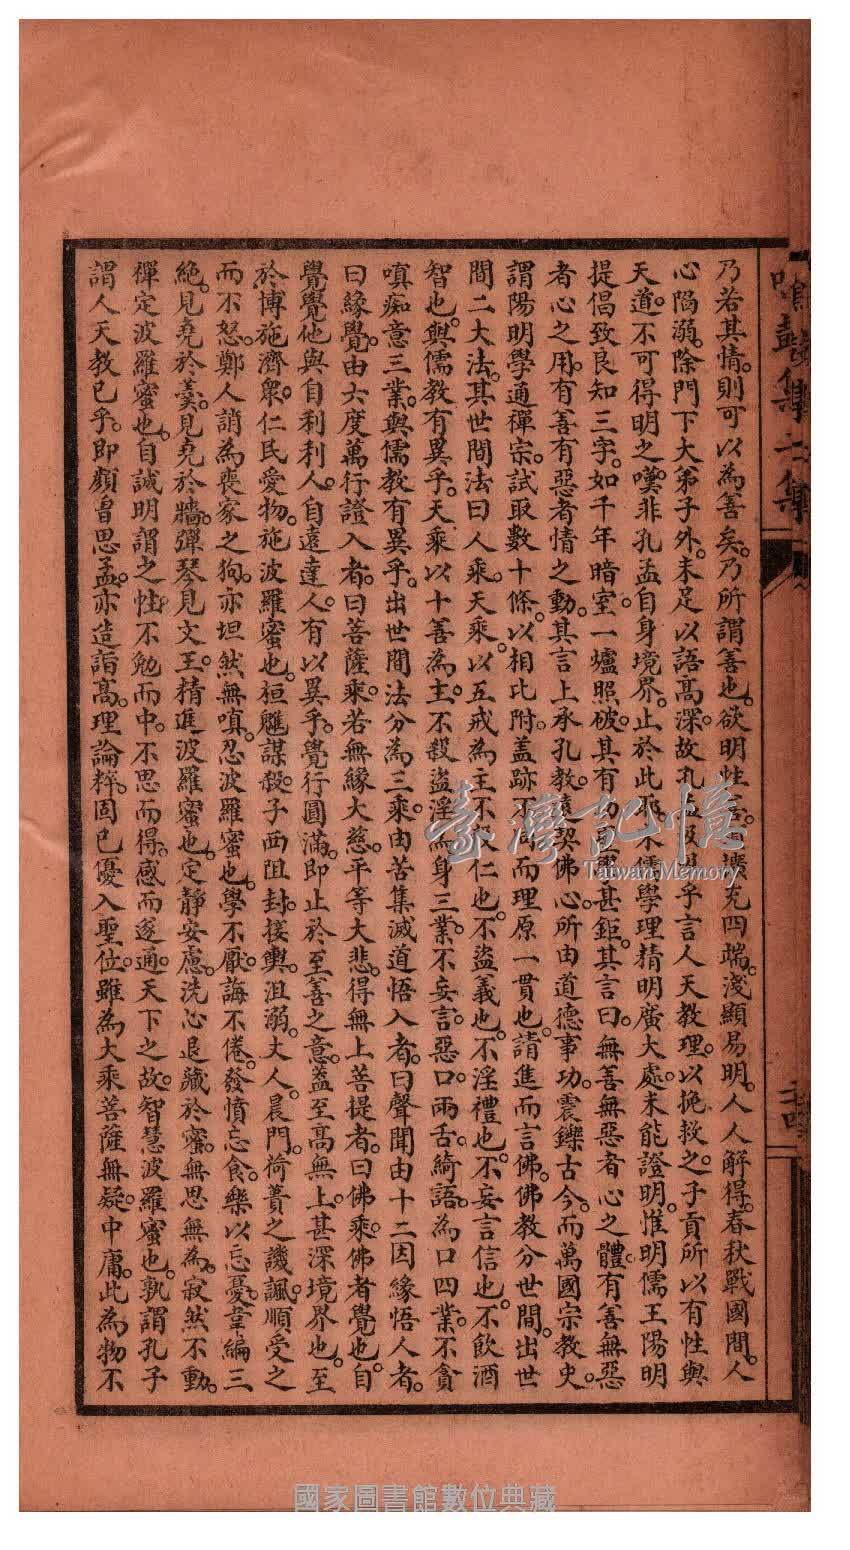 鳴鼓集二集
乃若其情。則可以為善矣。乃所謂善也。欲明性善。擴充四端。淺顯易明。人人解得。春秋戰國間。人
心陷溺。除門下大弟子外。未足以語高深。故孔孟乎言人天教理。以挽救之。子貢所以有性與
天道。不可得明之嘆。非孔孟自身境界。止於此耶。宋儒學理精明廣大處。未能證明。惟明儒王陽明
提倡致良知三字。如千年暗室。一爐照破。其有功甚鉅。其言曰。無善無惡者心之體。有善無惡
者心之用。有善有惡者情之動。其言上承孔教。遠契佛心。所由道德事功。震鑠古今。而萬國宗教史。
謂陽明學通禪宗。試取數十條。以相比附。蓋跡不同而理原一貫也。請進而言佛。佛教分世間。出世
間二大法。其世間法曰人乘。天乘。以五戒為主不殺仁也。不盜義也。不淫禮也。不妄言信也。不飲酒
智也。與儒教有異乎。天乘以十善為主。不殺盜淫為身三業。不妄言。惡口。兩舌。綺語。為口四業。不貪
嗔痴意三業。與儒教有異乎。出世間法分為三乘。由苦集滅道悟入者。曰聲聞由十二因緣悟人者。
曰緣覺。由六度萬行證入者。曰菩薩乘。若無緣大慈。平等大悲。得無上菩提者。曰佛乘。佛者覺也。自
覺覺他與自利利人。自遠達人。有以異乎。覺行圓滿。即止於至善之意。蓋至高無上。甚深境界也。至
於博施濟衆。仁民愛物。施波羅蜜也。桓魋謀殺。子西阻封。接輿沮溺。丈人。晨門。荷蕢之譏諷。順受之
而不怒。鄭人誚為喪家之狗。亦坦然無嗔。忍波羅蜜也。學不厭。誨不倦。發憤忘食。樂以忘憂。韋編三
絶。見堯於羹。見堯於牆。彈琴見文王。精進波羅蜜也。定靜安慮。洗心退藏於蜜。無思無為。寂然不動。
禪定波羅蜜也。自誠明謂之性。不勉而中。不思而得。感而遂通。天下之故。智慧波羅蜜也。孰謂孔子
謂人天教已乎。即顏曾思孟。亦造詣高。理論粹。固已優入聖位。雖為大乘菩薩無疑。中庸。此為物不
二十四
臺灣記憶
Taiwan Memory
國家圖書館數位典藏